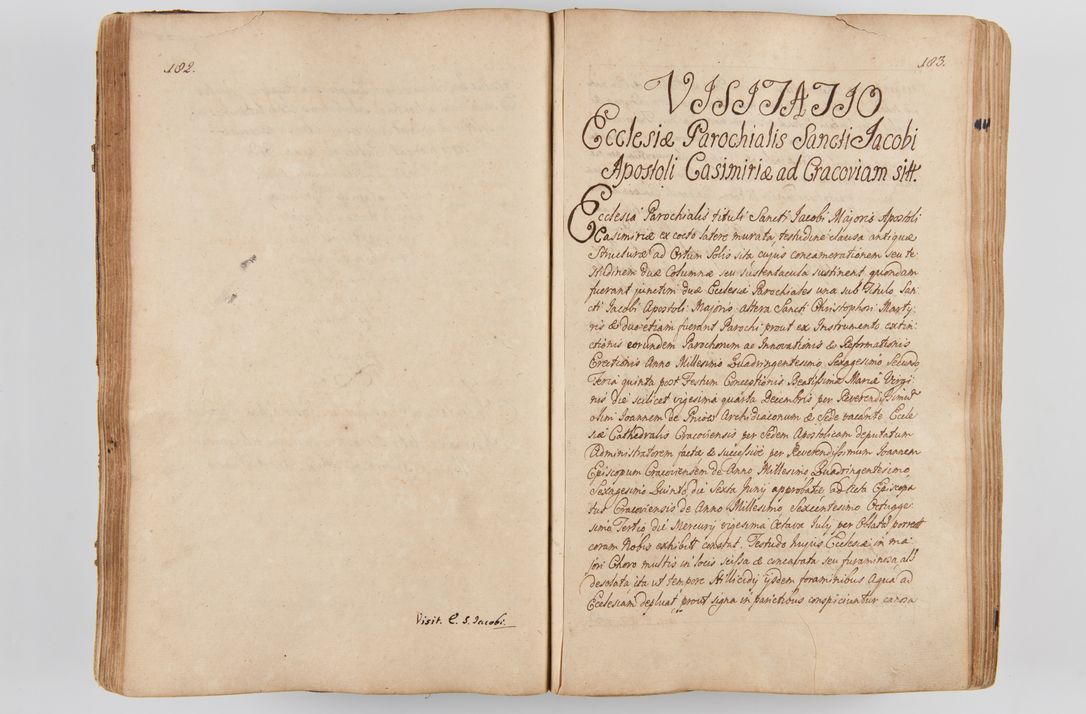 182.
Visit. E. S. Jacobi.
183.
VISITATIO
Ecclesiæ Parochialis Sancti Jacobi
Apostoli Casimiriæ ad Cracoviam sitt.
Ecclesia Parochialis tituli Sancti Jacobi Majoris Apostoli
Casimiriæ ex cocto latere murata, testudine clausa antiquæ
Structuræ ad Ortum Solis sita cujus concamerationem seu te
studinem duæ Columnæ seu sustentacula sustinent, quondam
fuerant junctim duæ Ecclesiæ Parochiales una sub Titulo San
cti Jacobi Apostoli Majoris altera Sancti Christophori Marty
ris & duo etiam fuerant Parochi prout ex Instrumento extin
ctionis eorundem Parochorum ac Innovationis & Reformationis
Erectionis Anno Millesimo Quadringentesimo Sexagesimo Secundo
Feria quinta post Festum Conceptionis Beatissimæ Mariæ Virgi
nis die scilicet vigesima quarta Decembris per Reverendissimum
olim Joannem de Archidiaconum & Sede vacante Eccle
siæ Cathedralis Cracoviensis per Sedem Apostolicam deputatum
Administratorem factæ & successive per Reverendissimum Joannem
Episcopum Cracoviensem de Anno Millesimo Quadringentesimo
Sexagesimo Quinto die Sexta Junij approbatæ ad Acta Episcopa
tus Cracoviensis de Anno Millesimo Sexcentesimo Octuage
simo Tertio die Mercurij vigesima Octava Julij per Oblatam porrect
coram Nobis exhibiti constat. Testudo hujus Ecclesiæ in ma
jori Choro multis in locis scissa & concavata seu foraminosa
desolata ita ut tempore stillicidij ijsdem foraminibus Aqua ad
Ecclesiam depluat prout signa in parietibus conspiciuntur